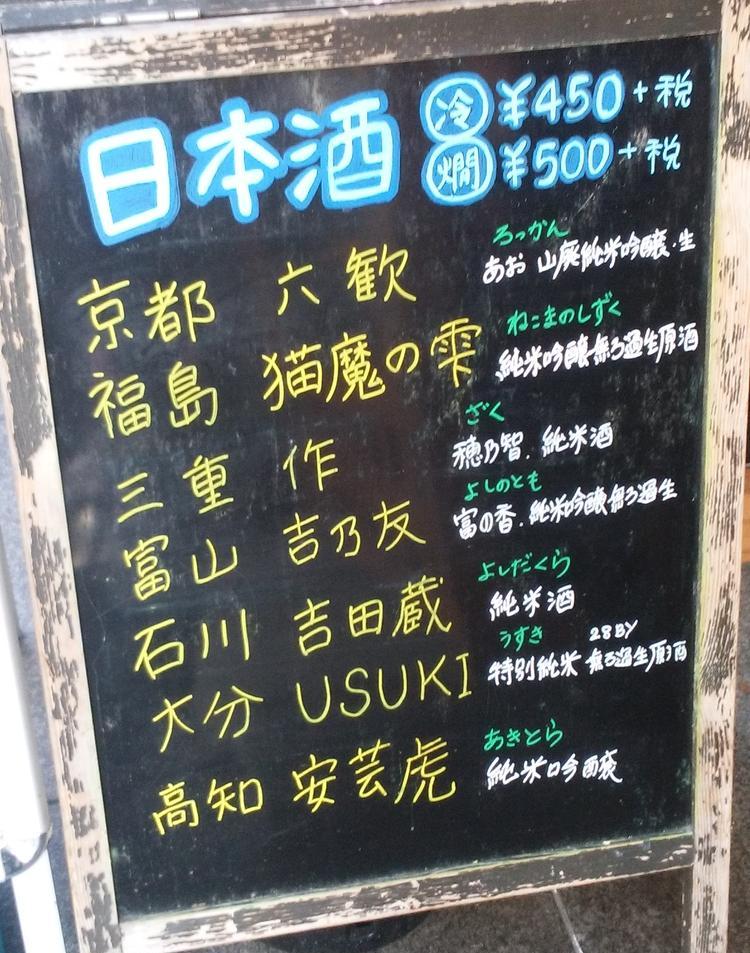 日本酒
冷 ¥450+税
燗 ¥500+税
ろっかん
京都 六歓 あお 山廃純米吟醸・生
ねこまのしずく
福島 猫魔の雫 純米吟醸無ろ過生原酒
ざく
三重 作 穂乃智. 純米酒
よしのとも
富山 吉乃友 富の香. 純米吟醸無ろ過生
よしだくら
石川 吉田蔵 純米酒
うすき 28BY
大分 USUKI 特別純米 無ろ過生原酒
あきとら
高知 安芸虎 純米吟醸